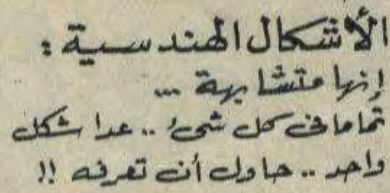 الأشكال الهندسية :
إنها متشابهة ...
تماما فى كل شىء .. عدا شكل
واحد .. حاول أن تعرفه !!